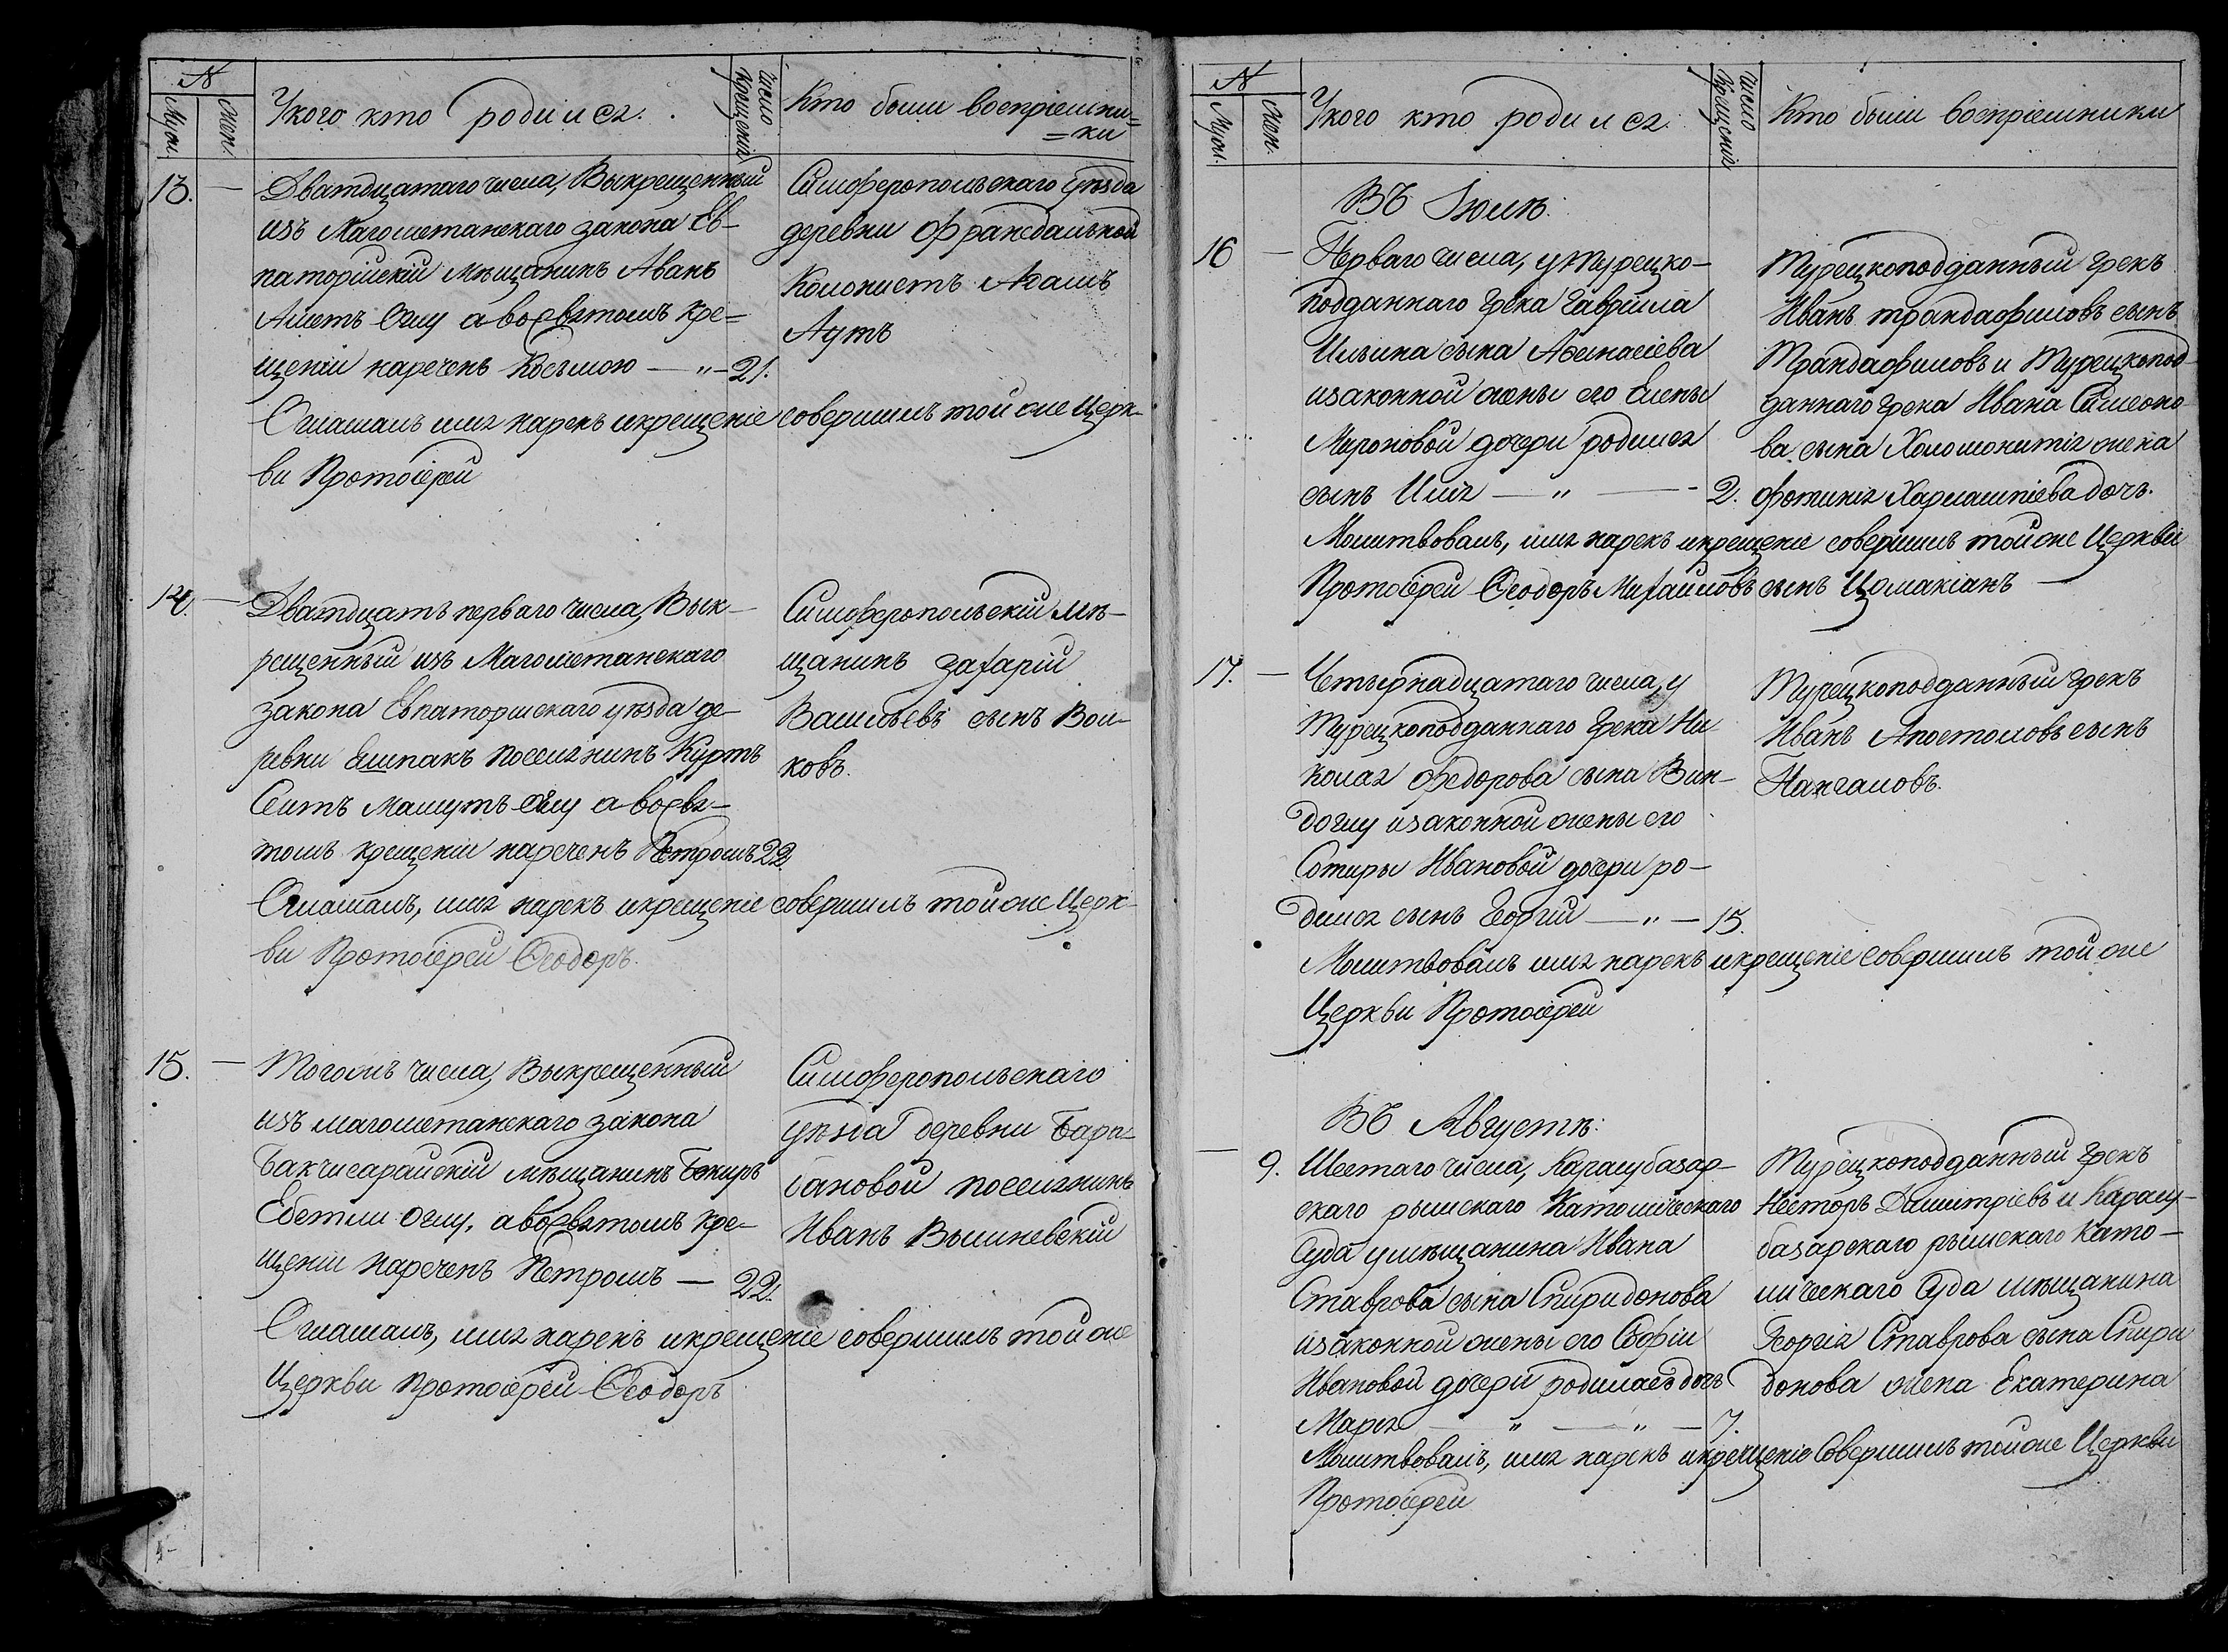 N
Муж.
Жен.
У кого кто родился.
Число Крещенія
Кто были воспріемни=
=ки
13. — Дватдцатаго числа, Выкрещенный
изъ Магометанскаго закона Ев-
паторійскій мѣщанинъ Аванъ
Аметъ Оглу а во святомъ кре=
щеніи нареченъ Косьмою — „ — 21.
Симферопольскаго уѣзда
деревни Франсдальной
Колонистъ Адамъ
Аутъ
Оглашалъ имя нарекъ и крещеніе совершилъ той же Церк-
ви Протоіерей
14. — Дватдцать перваго числа, Вык-
рещенный изъ Магометанскаго
закона Евпаторійскаго уѣзда де-
ревни Ешпакъ поселянинъ Куртъ
Сеитъ Машутъ Оглу а во свя-
томъ крещеніи нареченъ Петромъ 22.
Симферопольскій мѣ-
щанинъ Захарій
Васильевъ сынъ Вол-
ковъ.
Оглашалъ, имя нарекъ и крещеніе совершилъ той же Церк-
ви Протоіерей Ѳеодоръ.
15. — Тогожъ числа, Выкрещенный
изъ магометанскаго закона
Бакчисарайскій мѣщанинъ Бекиръ
Ебетли Оглу, а во святомъ кре-
щеніи нареченъ Петромъ — 22.
Симферопольскаго
уѣзда деревни Бара-
бановой поселянинъ
Иванъ Вышневскій
Оглашалъ, имя нарекъ и крещеніе совершилъ той же
Церкви Протоіерей Ѳеодоръ
N
Муж.
Жен.
У кого кто родился.
Число Крещенія
Кто были воспріемники
Въ Іюлѣ:
16 — Перваго числа, у турецко-
подданнаго Грека Гавріила
Ильина сына Аѳанасіева
и законной жены его Елены
Мироновой дочери родился
сынъ Илія — „ — 2.
Турецкоподданный Грекъ
Иванъ Трандафиловъ сынъ
Трандафиловъ и Турецкопод-
даннаго Грека Ивана Симеоно-
ва сына Холомонитія жена
Фотинія Харлампіева дочь.
Молитвовалъ, имя нарекъ и крещеніе совершилъ той же Церкви
Протоіерей Ѳеодоръ Михаиловъ сынъ Цомакіанъ —
17. — Четырнадцатаго числа, у
Турецкоподданнаго Грека Ни-
колая Федорова сына Вин-
доглу и законной жены его
Сотиры Ивановой дочери ро-
дился сынъ Георгій — „ — 15.
Турецкоподданный Грекъ
Иванъ Апостоловъ сынъ
Пангаловъ.
Молитвовалъ имя нарекъ и крещеніе совершилъ той же
Церкви Протоіерей
Въ Августѣ:
— 9. Шестаго числа, Карасубазар-
скаго римскаго Католическаго
Суда у мѣщанина Ивана
Ставрова сына Спиридонова
и законной жены его Софіи
Ивановой дочери родилась дочь
Марія — „ — „ — 7.
Турецкоподданный Грекъ
Несторъ Димитріевъ и Карасу-
базарскаго римскаго Като-
лическаго Суда мѣщанина
Георгія Ставрова сына Спири
донова жена Екатерина
Молитвовалъ, имя нарекъ и крещеніе Совершилъ той же Церкви
Протоіерей